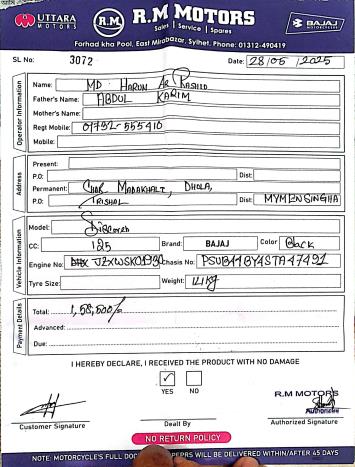 UTTARA MOTORS
R.M
R.M MOTORS
Sales | Service | Spares
BAJAJ
Farhad kha Pool, East Mirabazar, Sylhet. Phone: 01312-490419
SL No: 3072 Date: 28/05/2025
Operator Information
Name: MD. HARUN AR RASHID
Father's Name: ABDUL KARIM
Mother's Name:
Regt Mobile: 01792-555410
Mobile:
Address
Present:
P.O: Dist:
Permanent: CHAR MADAKHALI, DHOLA,
P.O: TRISHAL Dist: MYMENSINGHA
Vehicle Information
Model: Discover
CC: 125 Brand: BAJAJ Color Black
Engine No: JZXWSK01930 Chasis No: PSUB11BY4STA47491
Tyre Size: Weight: 121 Kg
Payment Details
Total: 1,58,500/-
Advanced:
Due:
I HEREBY DECLARE, I RECEIVED THE PRODUCT WITH NO DAMAGE
✓
YES NO
R.M MOTORS
Authorized
Customer Signature Dealt By Authorized Signature
NO RETURN POLICY
NOTE: MOTORCYCLE'S FULL PEPRS WILL BE DELIVERED WITHIN/AFTER 45 DAYS